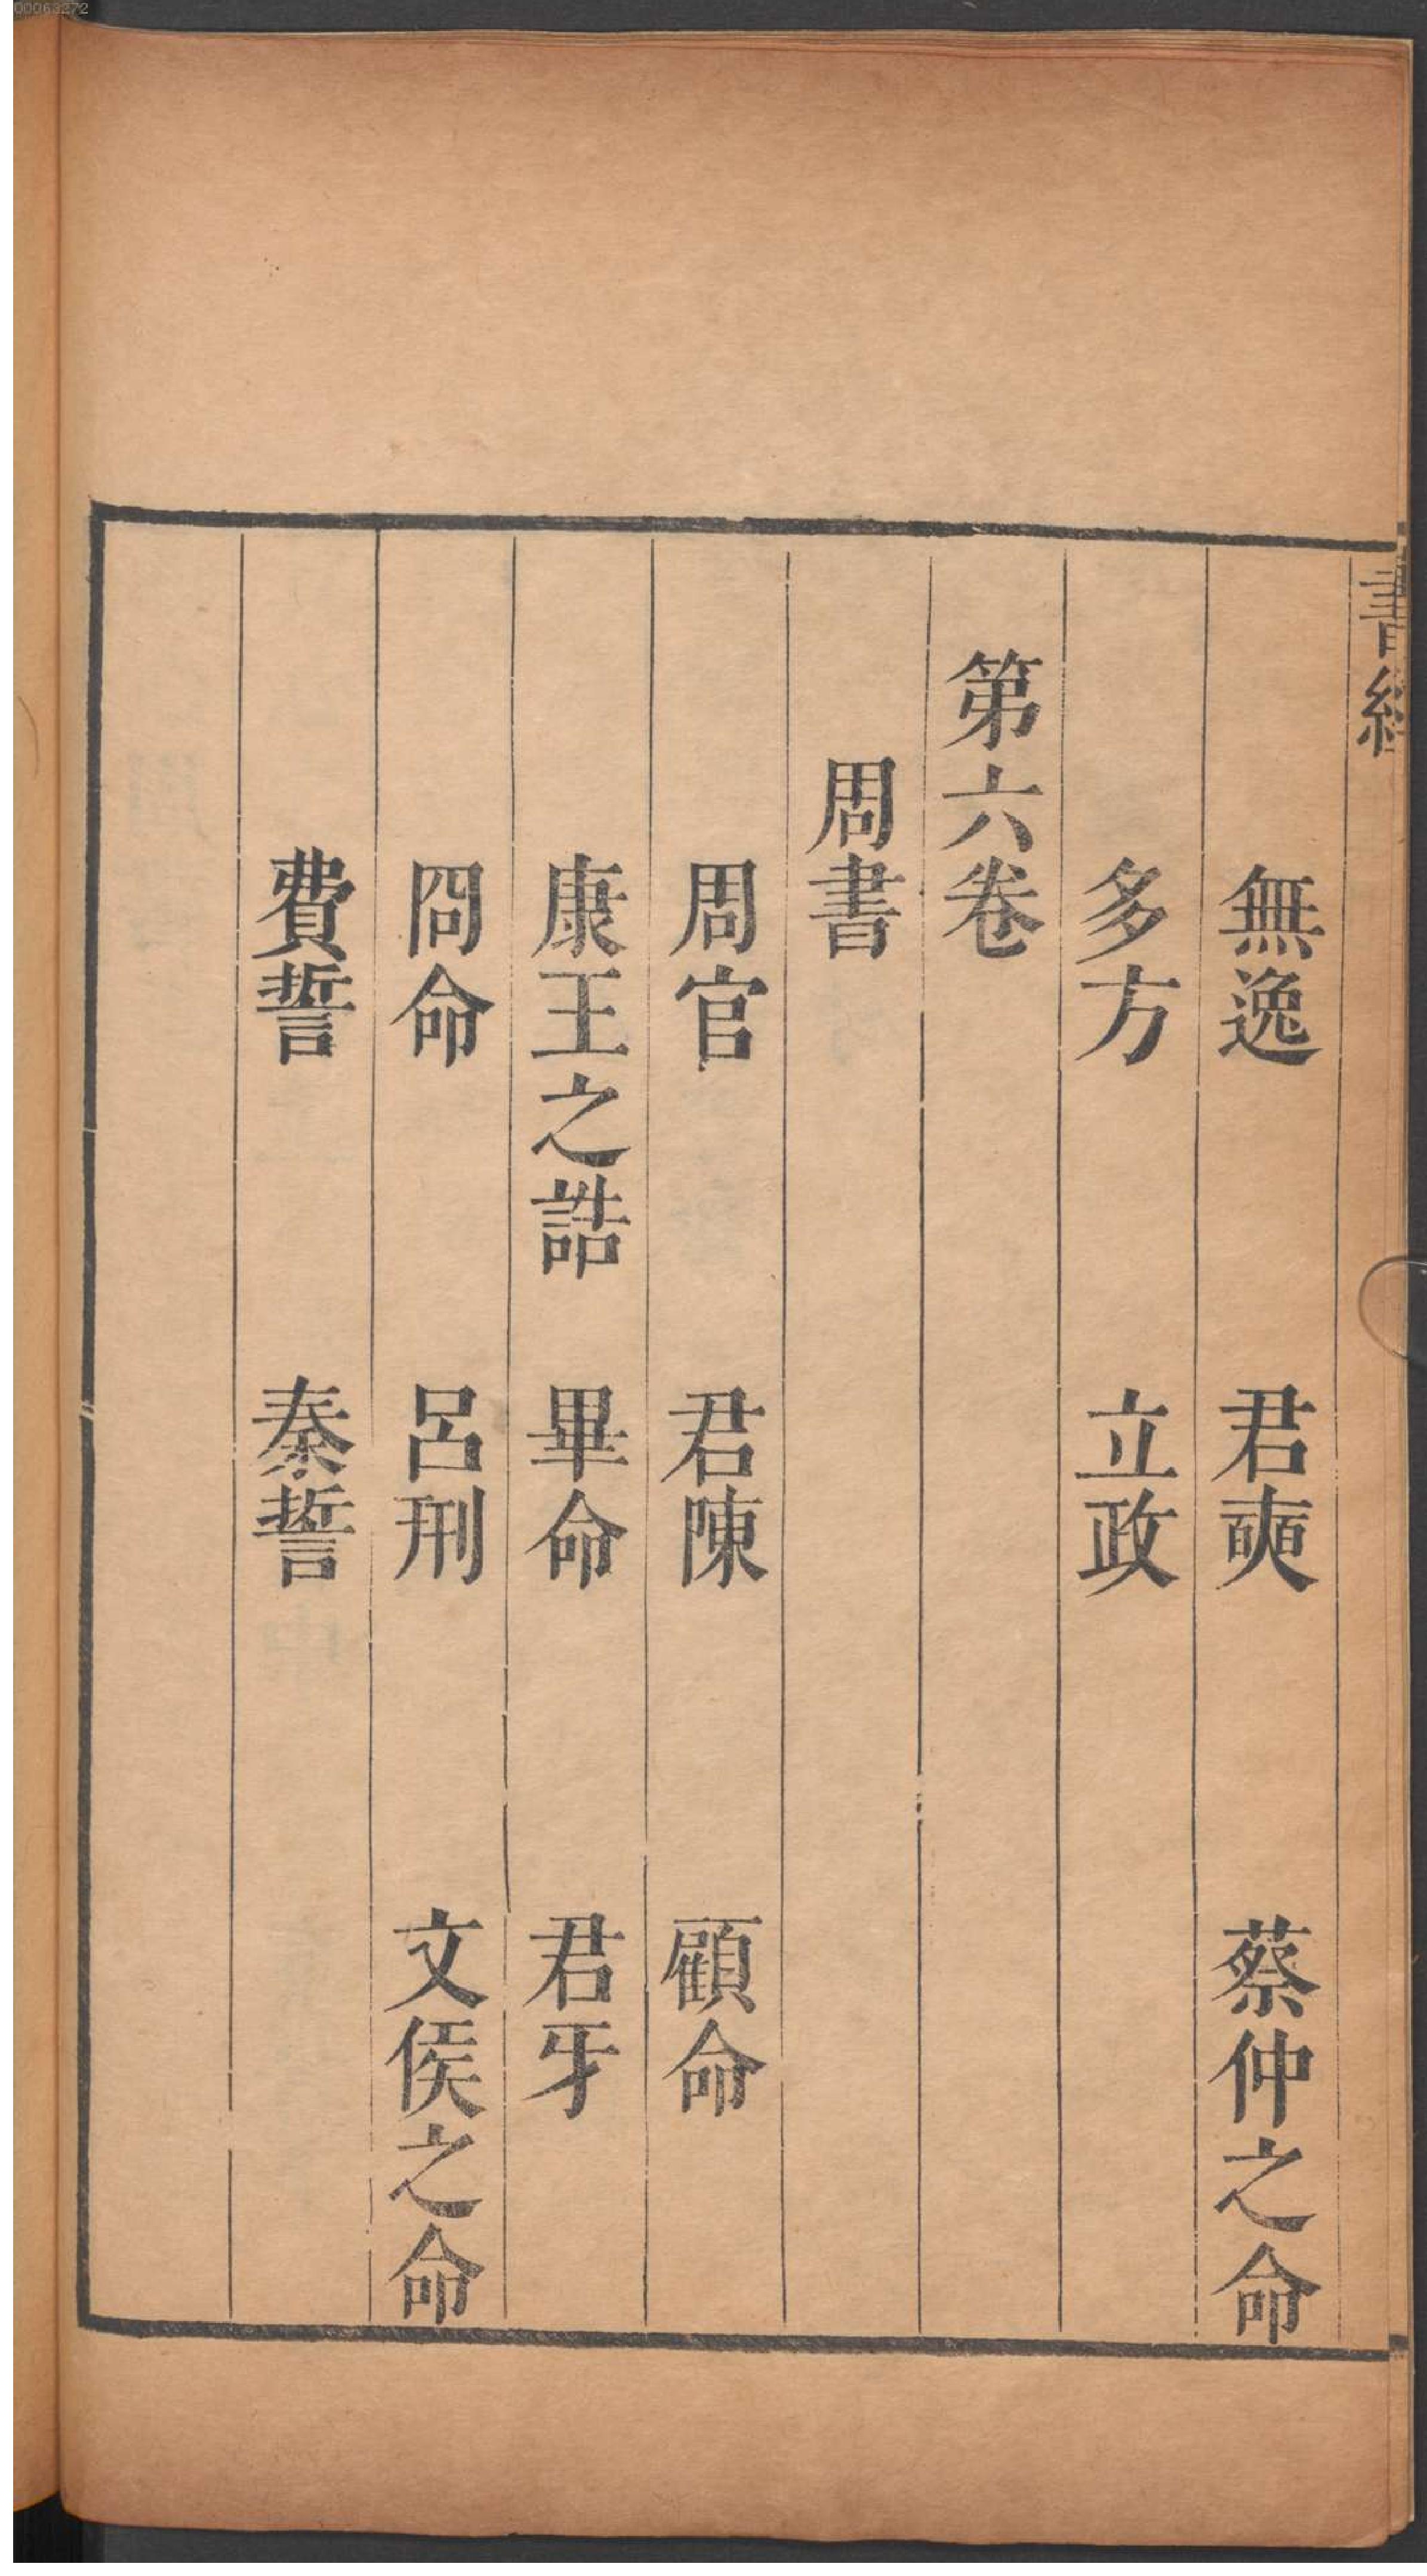 00063272
書經
無逸 君奭 蔡仲之命
多方 立政
第六卷
周書
周官 君陳 顧命
康王之誥 畢命 君牙
冏命 呂刑 文侯之命
費誓 秦誓